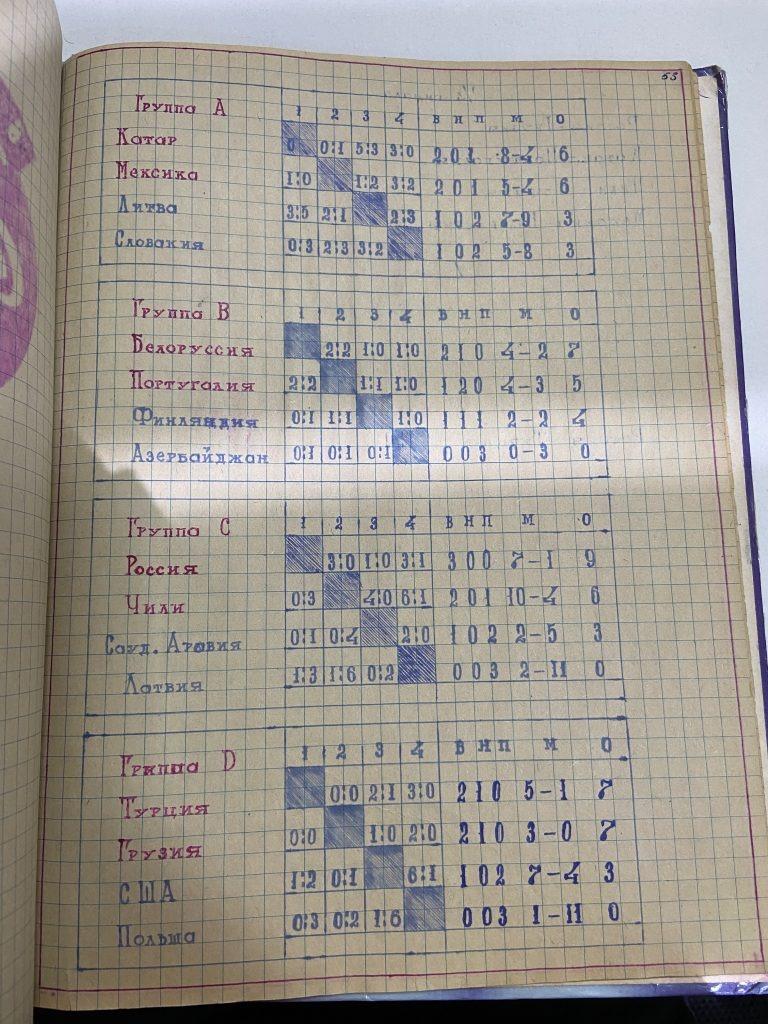 55
Группа А 1 2 3 4 В Н П М О
Катар 0:1 5:3 3:0 2 0 1 8-4 6
Мексика 1:0 1:2 3:2 2 0 1 5-4 6
Литва 3:5 2:1 2:3 1 0 2 7-9 3
Словакия 0:3 2:3 3:2 1 0 2 5-8 3
Группа В 1 2 3 4 В Н П М О
Белоруссия 2:2 1:0 1:0 2 1 0 4-2 7
Португалия 2:2 1:1 1:0 1 2 0 4-3 5
Финляндия 0:1 1:1 1:0 1 1 1 2-2 4
Азербайджан 0:1 0:1 0:1 0 0 3 0-3 0
Группа С 1 2 3 4 В Н П М О
Россия 3:0 1:0 3:1 3 0 0 7-1 9
Чили 0:3 4:0 6:1 2 0 1 10-4 6
Сауд. Аравия 0:1 0:4 2:0 1 0 2 2-5 3
Латвия 1:3 1:6 0:2 0 0 3 2-11 0
Группа D 1 2 3 4 В Н П М О
Турция 0:0 2:1 3:0 2 1 0 5-1 7
Грузия 0:0 1:0 2:0 2 1 0 3-0 7
США 1:2 0:1 6:1 1 0 2 7-4 3
Польша 0:3 0:2 1:6 0 0 3 1-11 0